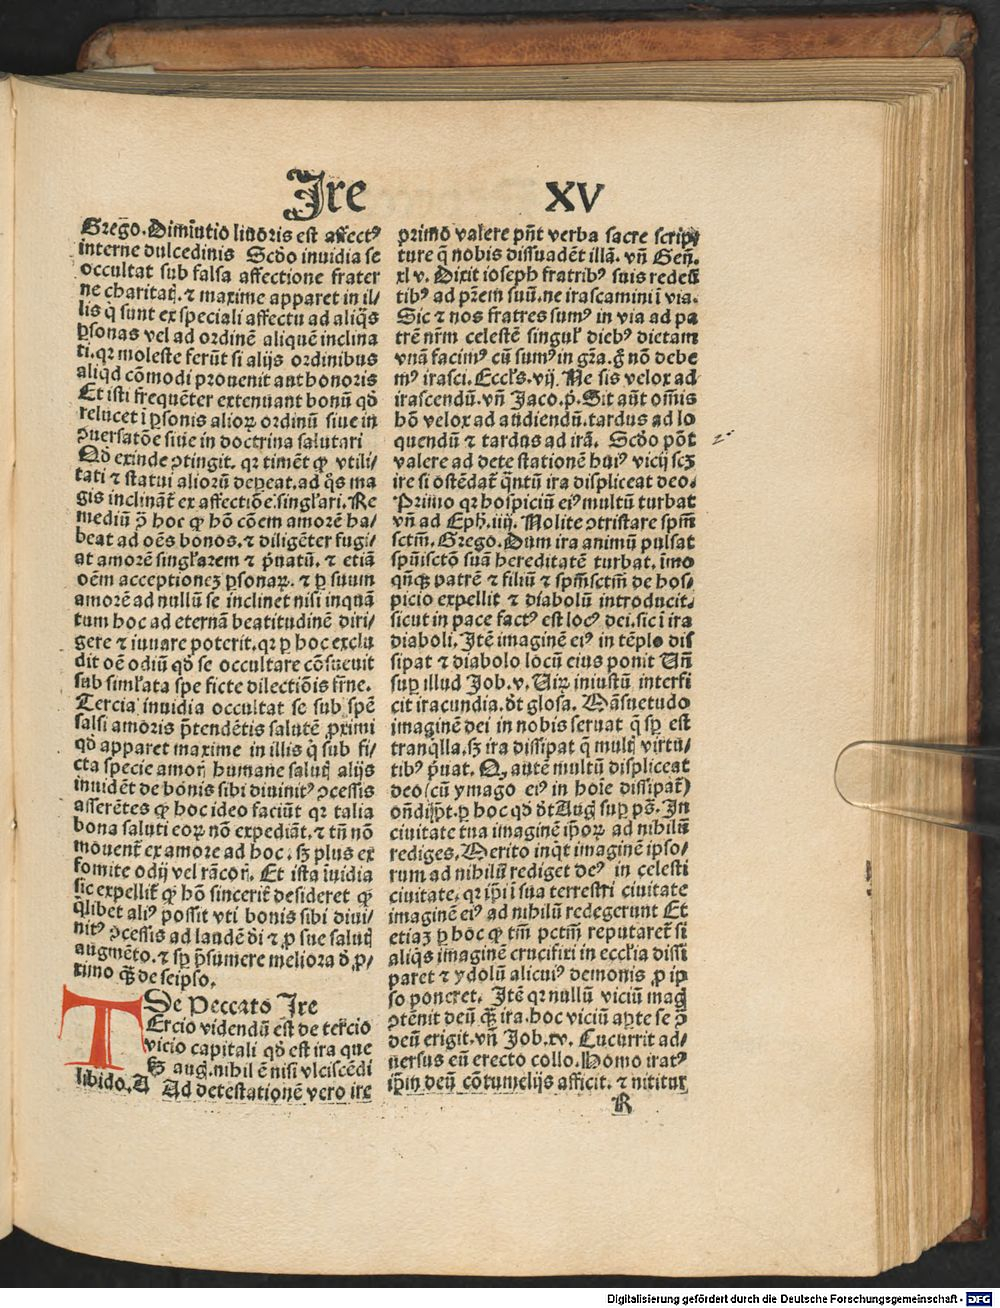 Ire XV
Grego. Diminutio liuoris est affectꝰ
interne dulcedinis Scd̄o inuidia se
occultat sub falsa affectione frater
ne charitatꝭ. ⁊ maxime apparet in il⸗
lis q̇ sunt ex speciali affectu ad aliq̄s
ꝑsonas vel ad ordinē aliquē inclina
ti. qꝛ moleste ferūt si alijs ordinibus
aliqd cōmodi prouenit aut honoris
Et isti frequēter extenuant bonū qd̄
relucet ī ꝑsonis alioꝝ ordinū siue in
ꝯuersatōe siue in doctrina salutari
Qd̄ exinde ꝯtingit. qꝛ timēt ꝙ vtili⸗
tati ⁊ statui aliorū depereat. ad q̄s ma
gis inclināt̄ ex affectiōe singl'ari. Re
mediū ꝯ̄ hoc ꝙ hō cōem amorē ha⸗
beat ad oēs bonos. ⁊ diligēter fugi⸗
at amorē singl'arem ⁊ p̄uatū. ⁊ etiā
oēm acceptioneꝫ ꝑsonaꝝ. ⁊ ꝑ suum
amorē ad nullū se inclinet nisi inquā
tum hoc ad eternā beatitudinē diri⸗
gere ⁊ iuuare poterit. qꝛ ꝑ hoc exclu
dit oē odiū qd̄ se occultare cōsueuit
sub siml'ata spe ficte dilectiōis fr̄ne.
Tercia inuidia occultat se sub spē
salsi amoris p̄tendētis salutē ꝓximi
qd̄ apparet maxime in illis q̇ sub fi⸗
cta specie amorꝭ humane salutꝭ alijs
inuidēt de bonis sibi diuinitꝰ ꝯcessis
asserētes ꝙ hoc ideo faciūt qꝛ talia
bona saluti eoꝝ nō expediāt. ⁊ tn̄ nō
mouent̄ ex amore ad hoc. sꝫ plus ex
fomite odij vel rācorꝭ. Et ista īuidia
sic expellit̄ ꝙ hō sincerit̄ desideret ꝙ
q̇libet aliꝰ possit vti bonis sibi diui⸗
nitꝰ ꝯcessis ad laudē dī ⁊ ꝓ sue salutꝭ
augmēto. ⁊ sꝑ p̄sumere meliora d̄ ꝓ⸗
ximo qꝫ̄ de seipso.
De Peccato Ire
TErcio videndū est de tercio
vicio capitali qd̄ est ira que
sꝫ aug. nihil ē nisi vlciscēdi
libido. A Ad detestationē vero ire
primo valere pn̄t verba sacre scrip⸗
ture q̄ nobis dissuadēt illā. vn̄ Gen̄.
xlv. Dixit ioseph fratribꝰ suis redeū
tibꝰ ad pr̄em suū. ne irascamini ī via.
Sic ⁊ nos fratres sumꝰ in via ad pa
trē nr̄m celestē singul' diebꝰ dietam
vnā facimꝰ cū sumꝰ in gr̄a. g̊ nō debe
mꝰ irasci. Eccl's. vij. Ne sis velox ad
irascendū. vn̄ Jaco. p̄. Sit aūt om̄is
hō velox ad audiendū. tardus ad lo
quendū ⁊ tardus ad irā. Scd̄o pōt
valere ad detestationē huiꝰ vicij scꝫ
ire si ostēdat̄ q̄ntū ira displiceat deo.
Primo qꝛ hospiciū eiꝰ multū turbat
vn̄ ad Eph. iiij. Nolite ꝯtristare sp̄m
sctm̄. Grego. Dum ira animū pulsat
sp̄uisctō suā hereditatē turbat. imo
qn̄qꝫ patrē ⁊ filiū ⁊ sp̄msctm̄ de hos⸗
picio expellit ⁊ diabolū introducit.
sicut in pace factꝰ est locꝰ dei. sic ī ira
diaboli. Itē imaginē eiꝰ in tēplo dis
sipat ⁊ diabolo locū eius ponit Un̄
suꝑ illud Job. v. Uiꝝ iniustū interfi
cit iracundia. dt̄ glosa. Māsuetudo
imaginē dei in nobis seruat q̄ sꝑ est
tranq̇lla. sꝫ ira dissipat q̄ multꝭ virtu⸗
tibꝰ p̄uat. Qꝫ autē multū displiceat
deo (cū ymago eiꝰ in hoīe dissipat̄)
on̄dit̄. ꝑ hoc qd̄ dt̄ Augꝭ suꝑ ps. In
ciuitate tua imaginē ip̄oꝝ ad nihilū
rediges. Merito inq̇t imaginē ipso⸗
rum ad nihilū rediget deꝰ in celesti
ciuitate. qꝛ ip̄i ī sua terrestri ciuitate
imaginē eiꝰ ad nihilū redegerunt Et
etiaꝫ ꝑ hoc ꝙ tm̄ pctm̄ reputaret̄ si
aliq̇s imaginē crucifixi in eccl'ia dissi
paret ⁊ ydolū alicuiꝰ demonis ꝓ ip
so poneret. Itē qꝛ nullū viciū magꝭ
ꝯtēnit deū qꝫ̄ ira. hoc viciū aꝑte se ꝯ̄
deū erigit. vn̄ Job. xv. Cucurrit ad⸗
uersus eū erecto collo. Homo iratꝰ
ip̄m deū cōtumelijs afficit. ⁊ nititur
R
Digitalisierung gefördert durch die Deutsche Forschungsgemeinschaft - DFG